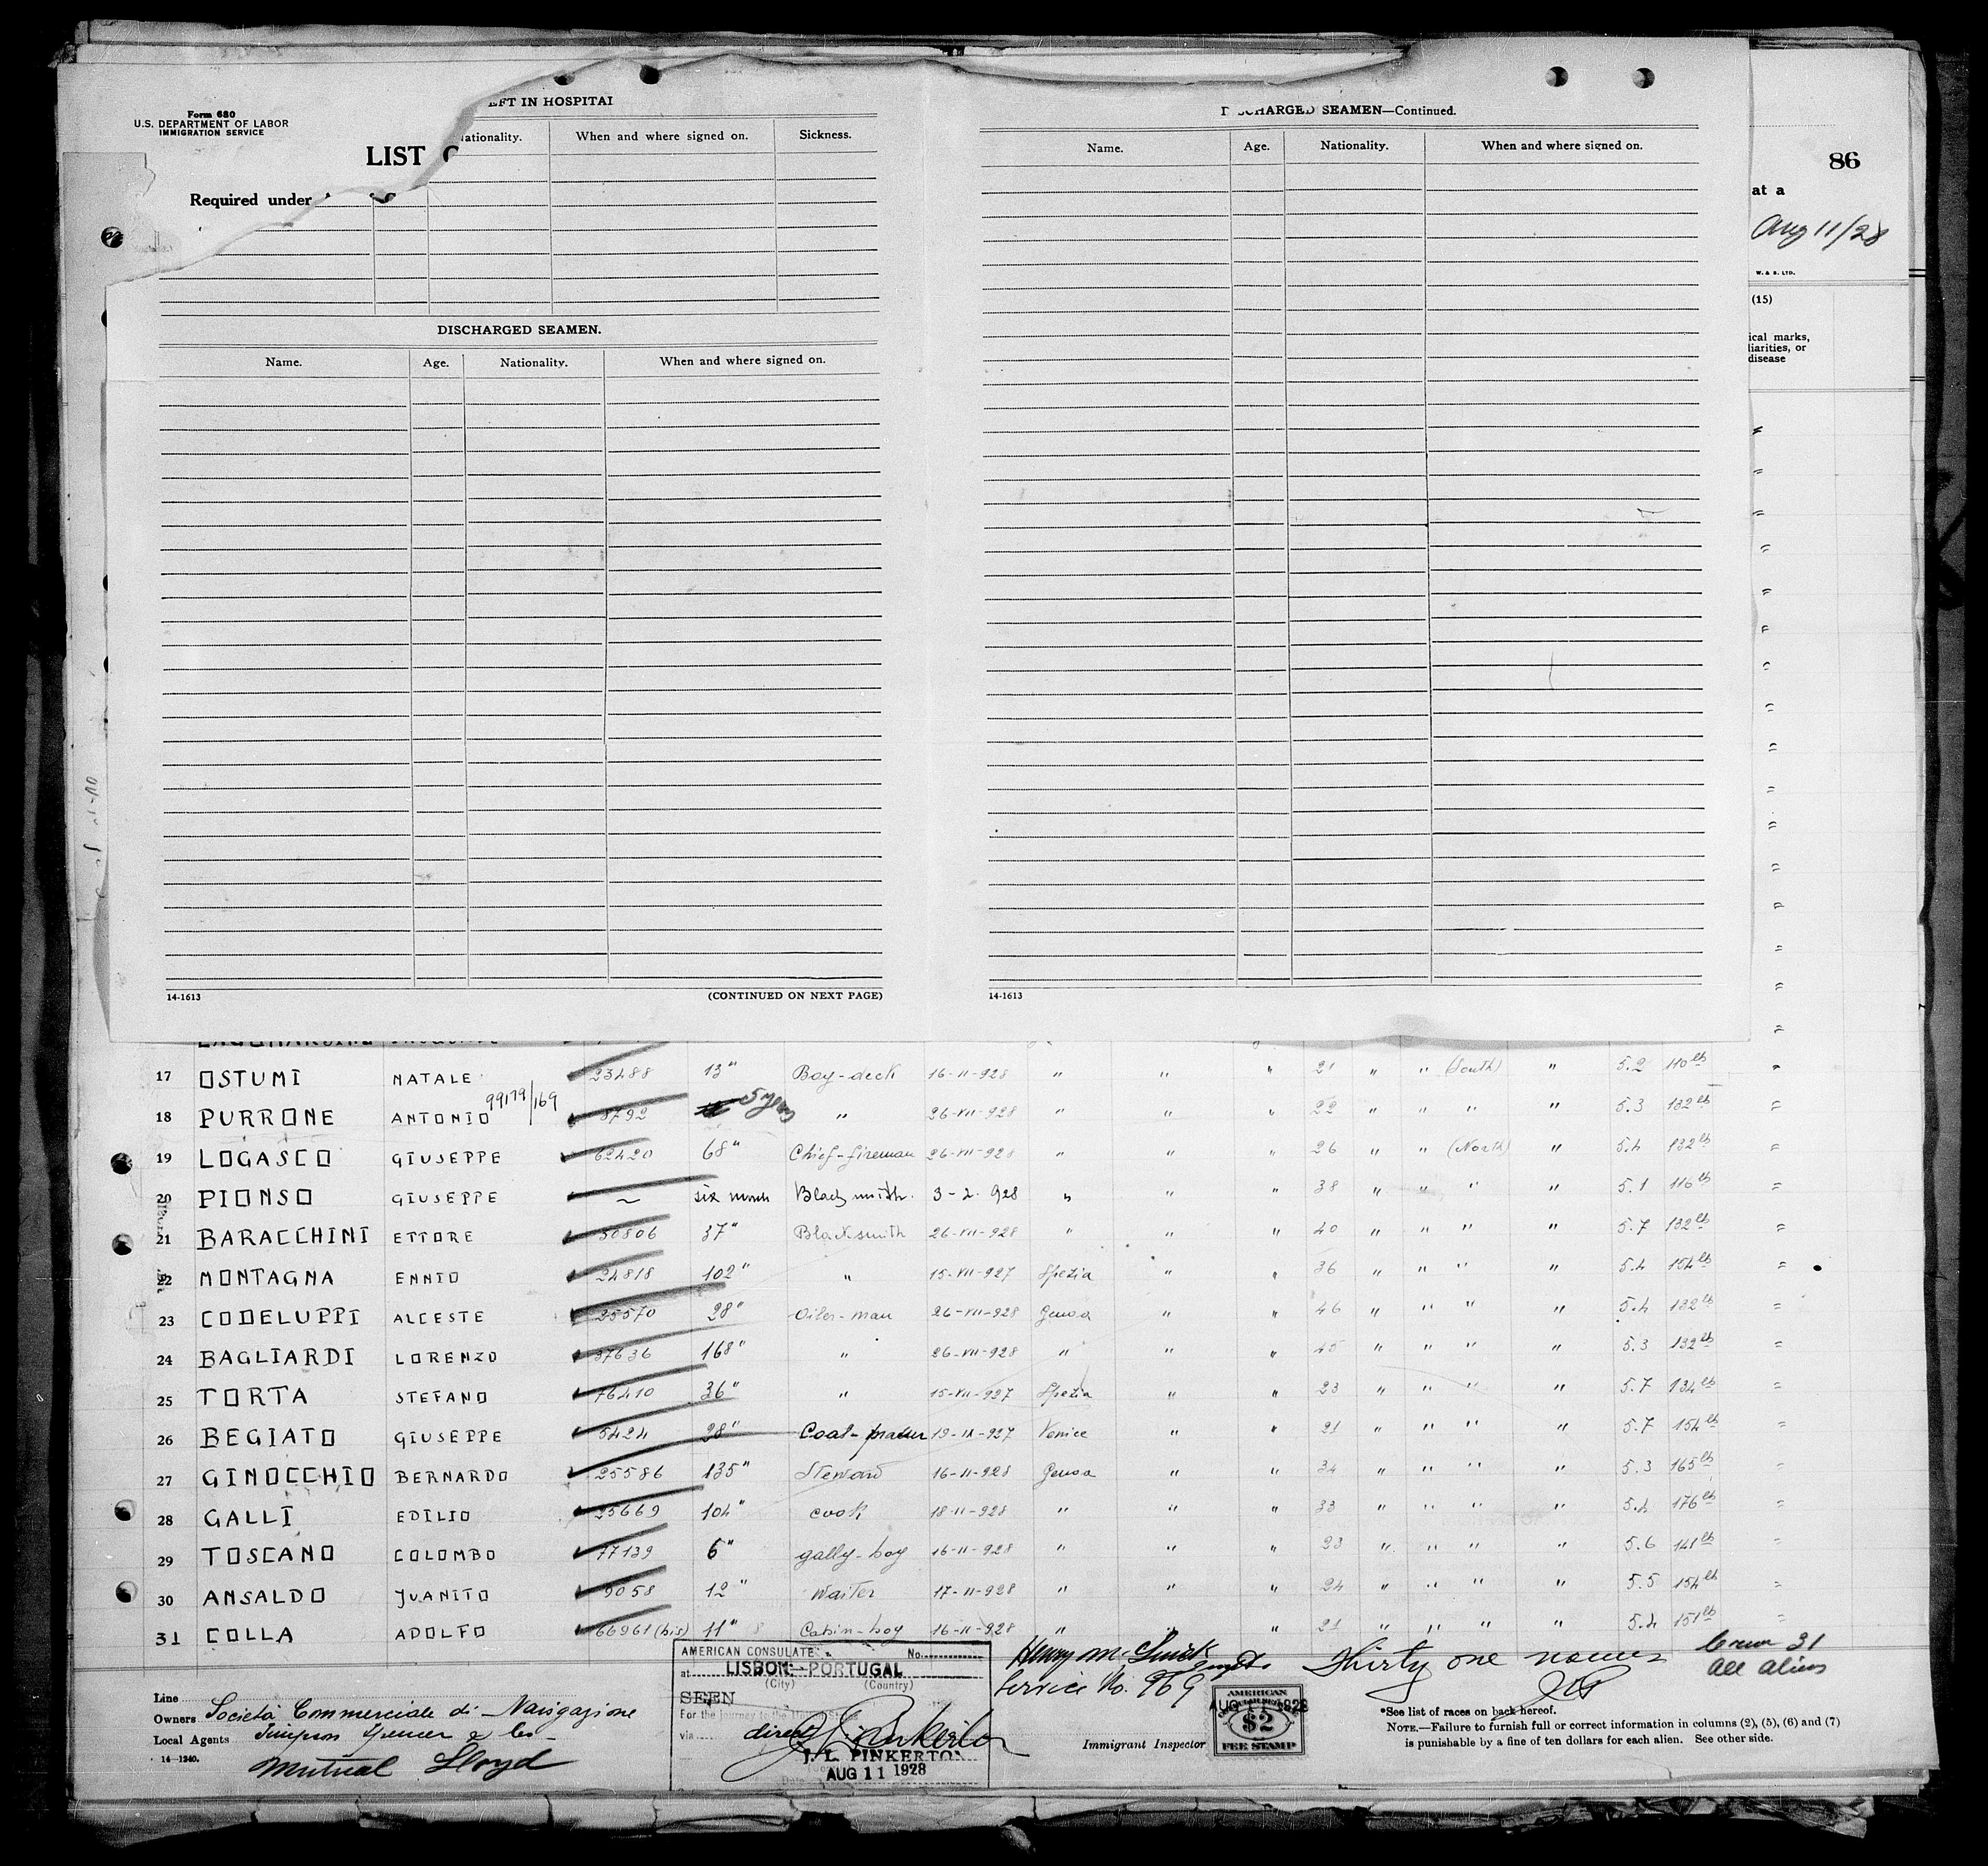 Form 680
U.S. DEPARTMENT OF LABOR
IMMIGRATION SERVICE
LIST
Required under
EFT IN HOSPITAL
Nationality. When and where signed on. Sickness.
DISCHARGED SEAMEN.
Name. Age. Nationality. When and where signed on.
14-1613 (CONTINUED ON NEXT PAGE)
DISCHARGED SEAMEN—Continued.
Name. Age. Nationality. When and where signed on.
14-1613
86
at a
Aug 11/28
W. & S. LTD.
(15)
ical marks,
liarities, or
disease
17 OSTUMI NATALE 23488 13" Boy-deck 16-11-928 " " " 21 " " (South) " 5.2 110 lb "
99179/169
18 PURRONE ANTONIO 8792 5 years " 26-VII-928 " " " 22 " " " " 5.3 132 lb "
19 LOGASCO GIUSEPPE 62420 68" Chief-fireman 26-VII-928 " " " 26 " " (North) " 5.4 132 lb "
20 PIONSO GIUSEPPE ~ six month Blacksmith. 3-2-928 " " " 38 " " " " 5.1 116 lb "
21 BARACCHINI ETTORE 50806 37" Blacksmith 26-VII-928 " " " 40 " " " " 5.7 132 lb "
22 MONTAGNA ENNIO 24818 102" " 15-VII-927 Spezia " " 36 " " " " 5.4 154 lb "
23 CODELUPPI ALCESTE 25570 28" Oiler-man 26-VII-928 Genoa " " 46 " " " " 5.4 132 lb "
24 BAGLIARDI LORENZO 37636 168" " 26-VII-928 " " " 45 " " " " 5.3 132 lb "
25 TORTA STEFANO 76410 36" " 15-VII-927 Spezia " " 23 " " " " 5.7 134 lb "
26 BEGIATO GIUSEPPE 5424 28" Coal- 19-IX-927 Venice " " 21 " " " " 5.7 154 lb "
27 GINOCCHIO BERNARDO 25586 135" Steward 16-11-928 Genoa " " 34 " " " " 5.3 165 lb "
28 GALLI EDILIO 25669 104" cook 18-11-928 " " " 33 " " " " 5.4 176 lb "
29 TOSCANO COLOMBO 77139 6" gally-boy 16-11-928 " " " 23 " " " " 5.6 148 lb "
30 ANSALDO JUANITO 9058 12" Waiter 17-11-928 " " " 24 " " " " 5.5 154 lb "
31 COLLA ADOLFO 66961 (bis) 11" Cabin-boy 16-11-928 " " " 21 " " " " 5.4 151 lb "
Line
Owners Società Commerciale di Navigazione
Local Agents Simpson Spencer & Co
14—1240.
Mutual Lloyd
AMERICAN CONSULATE No.
at LISBON - PORTUGAL
(City) (Country)
SEEN
For the journey to the United States
via direct
J. L. PINKERTON
AUG 11 1928
Henry
Service No. 969
AUG 11 1928
AMERICAN
$2
FEE STAMP
Immigrant Inspector
Thirty one names
Crew 31
all aliens
*See list of races on back hereof.
NOTE.—Failure to furnish full or correct information in columns (2), (5), (6) and (7)
is punishable by a fine of ten dollars for each alien. See other side.